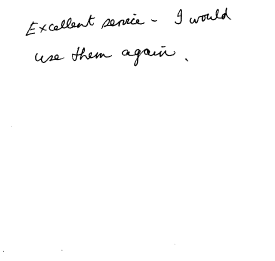 Excellent service - I would
use them again.